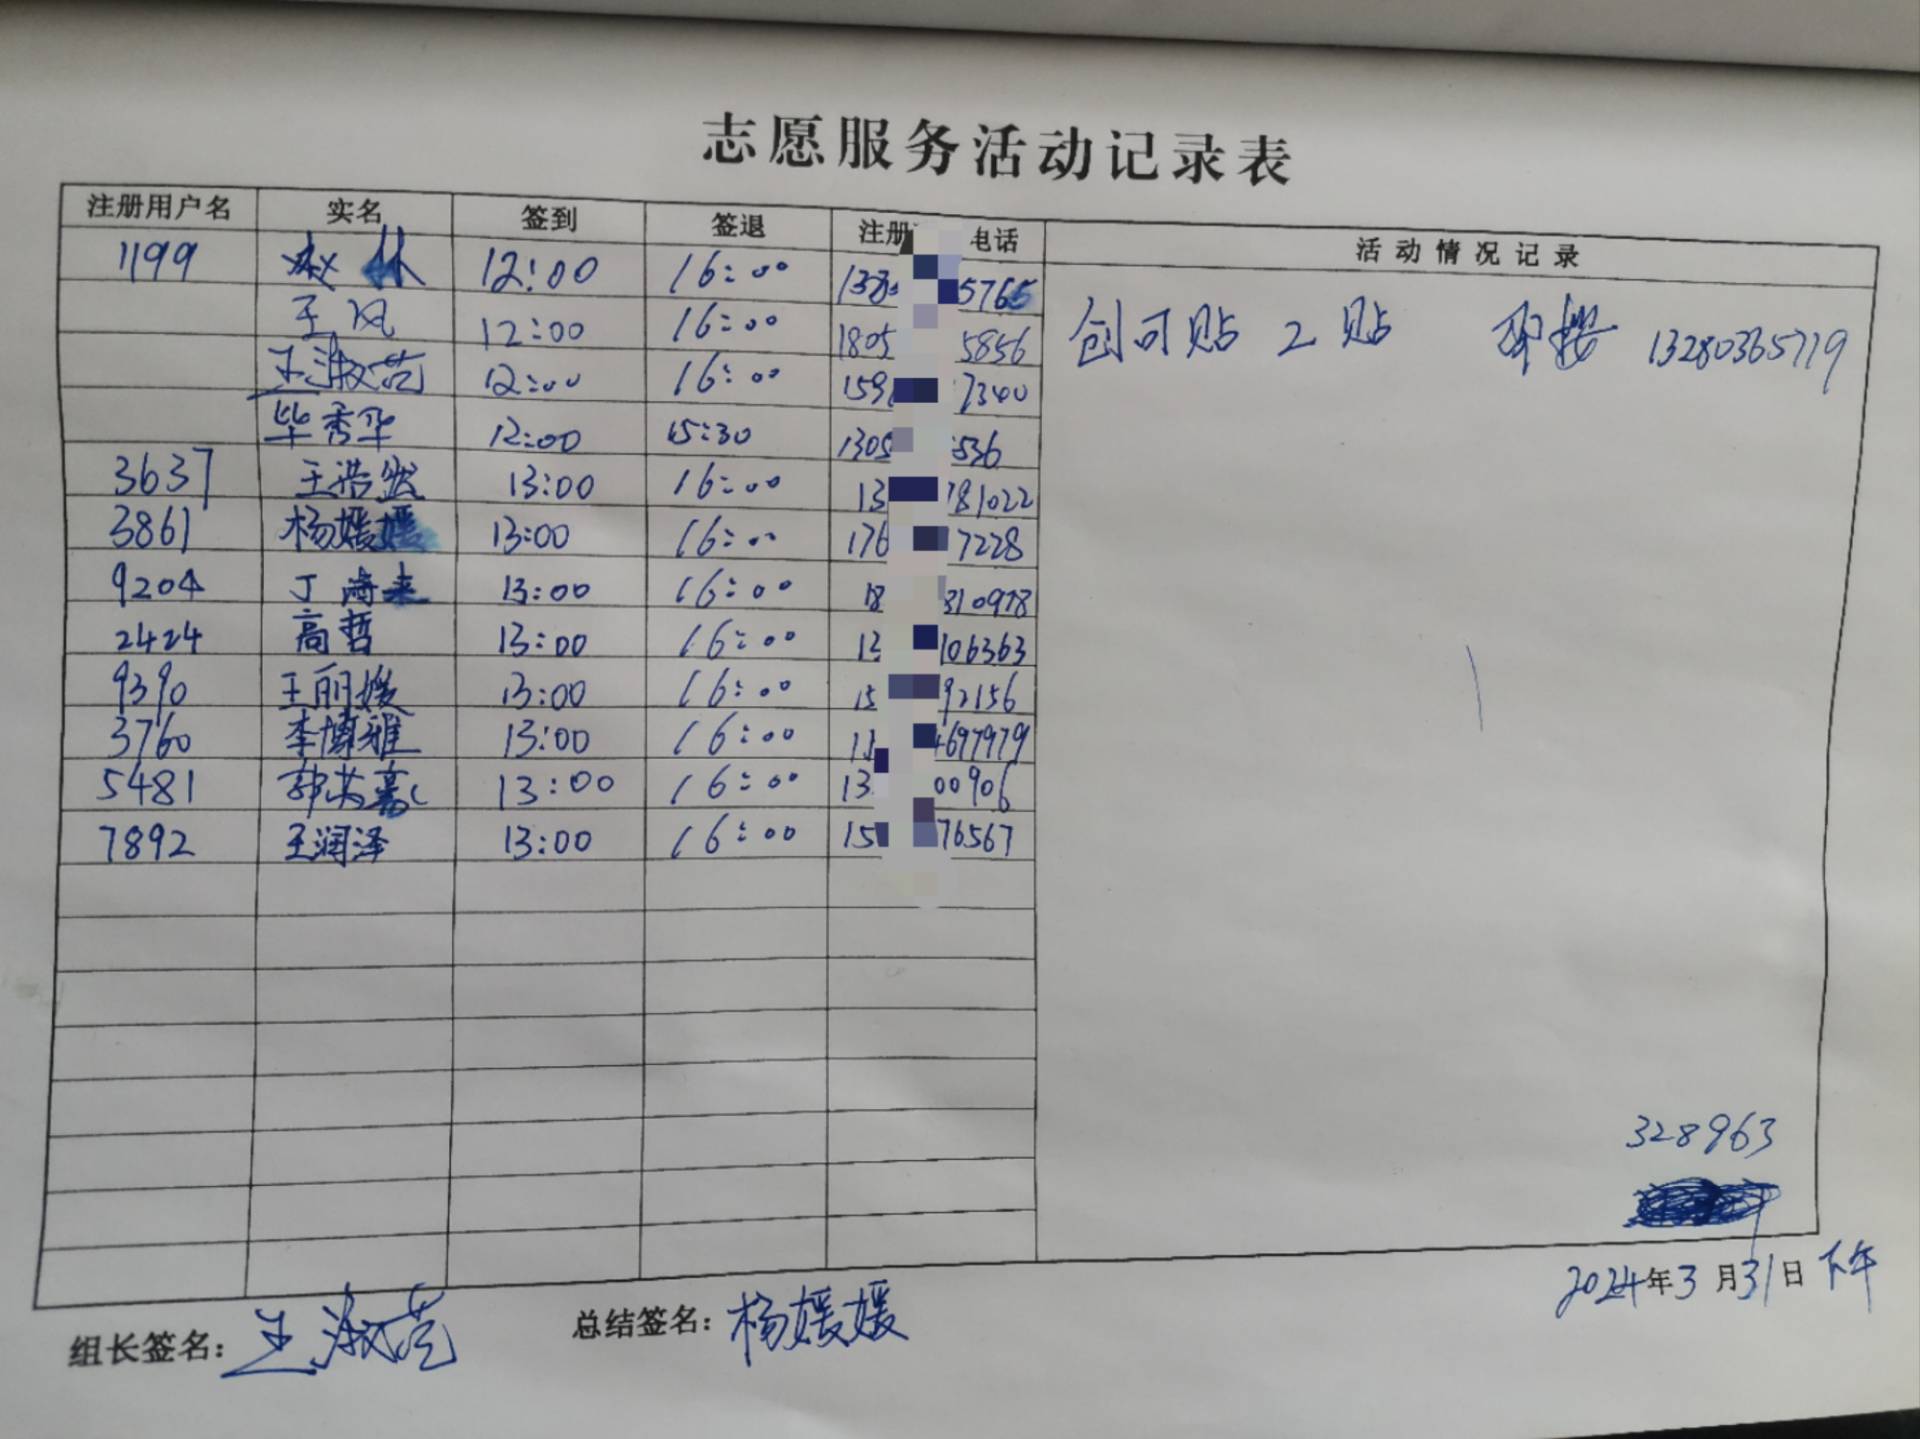 志愿服务活动记录表
注册用户名 实名 签到 签退 注册 电话 活动情况记录
1199 赵林 12:00 16:00 5765
王风 12:00 16:00 1805 5856
王淑范 12:00 16:00 159 7340
毕秀华 12:00 15:30 1305 536
创可贴 2贴 13280365719
3637 王浩然 13:00 16:00 13 781022
3861 杨媛媛 13:00 16:00 176 7228
9204 丁海来 13:00 16:00 18 310978
2424 高哲 13:00 16:00 106363
9390 王丽媛 13:00 16:00 15 92156
3760 李博雅 13:00 16:00 697979
5481 郭 嘉 13:00 16:00 13 00906
7892 王润泽 13:00 16:00 15 76567
328963
2024年3月31日下午
组长签名: 王淑范 总结签名: 杨媛媛